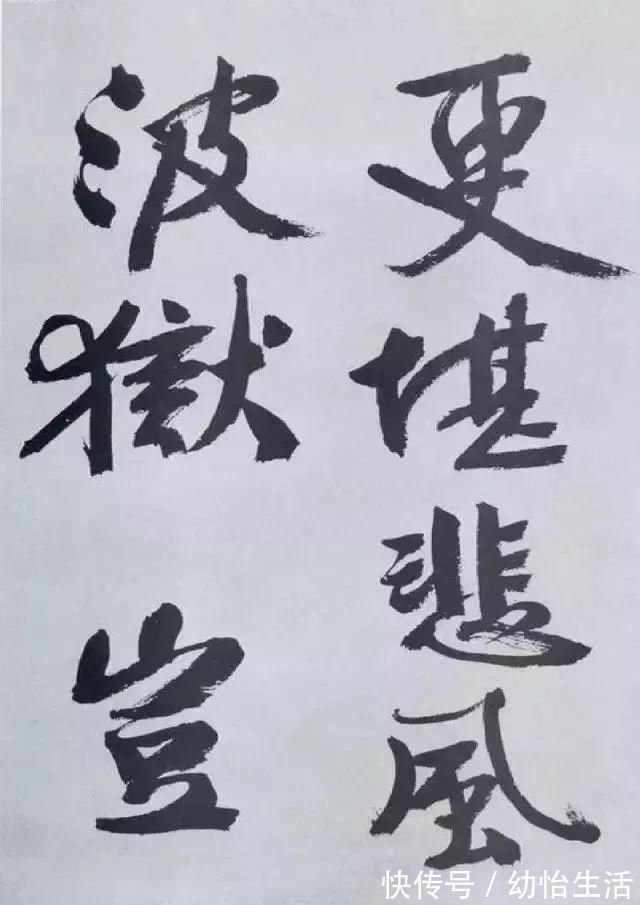 更堪悲風
波獄豈
快传号/幼怡生活